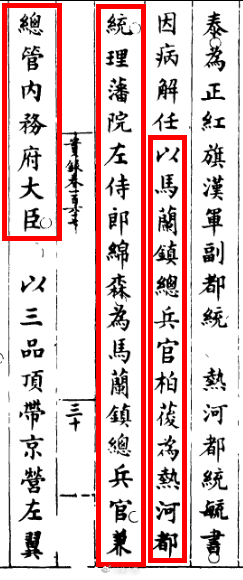 泰為正紅旗漢軍副都統　熱河都統毓書
因病解任以馬蘭鎮總兵官柏葰為熱河都
統理藩院左侍郎綿森為馬蘭鎮總兵官兼
實錄卷一百
三十
總管內務府大臣　以三品頂帶京營左翼